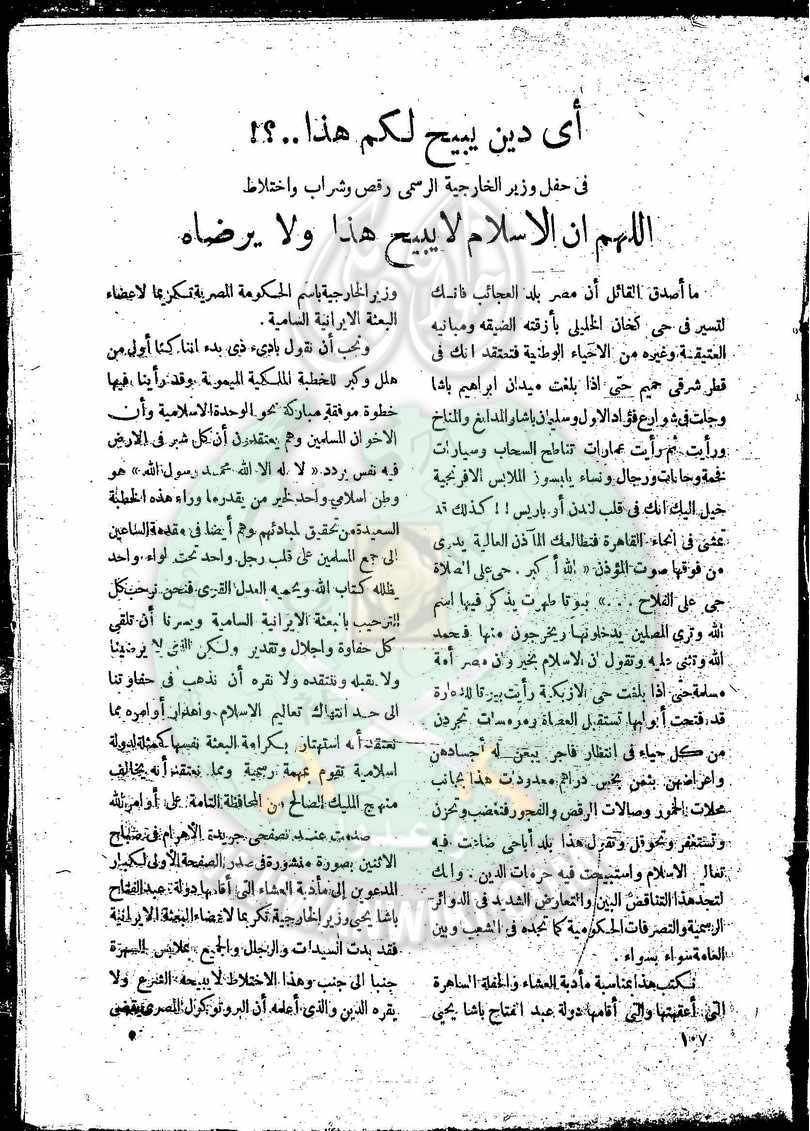 أى دين يبيح لكم هذا..؟!
فى حفل وزير الخارجية الرسمى رقص وشراب واختلاط
اللهم ان الاسلام لايبيح هذا ولا يرضاه
ما أصدق القائل أن مصر بلد العجائب فانك
لتسير فى حى كخان الخليلى بأزقته الضيقه ومبانيه
العتيقة وغيره من الاحياء الوطنية فتعتقد انك فى
قطر شرقى صميم حتى اذا بلغت ميدان ابراهيم باشا
وجلت فى شوارع فؤاد الاول وسليمان باشا والمدابغ والمناخ
ورأيت ثم رأيت عمارات تناطح السحاب وسيارات
فخمة وحانات ورجال ونساء يلبسوز الملابس الافرنجية
خيل اليك انك فى قلب لندن أو باريس !! كذلك قد
تمشى فى انحاء القاهرة فتطالعك المآذن العالية يدوى
من فوقها صوت المؤذن « الله أكبر . حى على الصلاة
حى على الفلاح . . . » بيوتا طهرت يذكر فيها اسم
الله وترى المصلين يدخلونها ويخرجون منها فتحمد
الله وتثنى عليه وتقول ان الاسلام بخير وان مصر أمة
مسلمة حتى اذا بلغت حى الازبكية رأيت بيوتا للدعارة
قد فتحت أبوابها تستقبل العصاة ومومسات تجردن
من كل حياء فى انتظار فاجر يبعن له أجسادهن
واعراضهن بثمن بخس دراهم معدودات هذا بجانب
محلات الخمور وصالات الرقص والفجور فتغضب وتحزن
وتستغفر وتحوقل وتقول هذا بلد أباحى ضاعت فيه
تعاليم الاسلام واستبيحت فيه حرمات الدين . وانك
لتجد هذا التناقض البين والتعارض الشديد فى الدوائر
الرسمية والتصرفات الحكومية كما تجده فى الشعب وبين
العامة سواء بسواء .
نكتب هذا بمناسبة مأدبة العشاء والحفلة الساهرة
التى أعقبتها والتى أقامها دولة عبد الفتاح باشا يحيى
وزير الخارجية باسم الحكومة المصرية تكريما لاعضاء
البعثة الايرانية السامية .
ونحب أن نقول بادىء ذى بدء اننا كنا أول من
هلل وكبر للخطبة الملكية الميمونة وقد رأينا فيها
خطوة موفقة مباركة نحو الوحدة الاسلامية وأن
الاخوان المسلمين وهم يعتقدون أن كل شبر فى الارض
فيه نفس يردد « لا اله الا الله محمد رسول الله » هو
وطن اسلامي واحد لخير من يقدر ما وراء هذه الخطبة
السعيدة من تحقيق لمبادئهم وهم أيضا فى مقدمة الساعين
الى جمع المسلمين على قلب رجل واحد تحت لواء واحد
يظلله كتاب الله ويحميه العدل القوى فنحن نرحب كل
الترحيب بالبعثة الايرانية السامية ويسرنا أن تلقى
كل حفاوة واجلال وتقدير ولكن الذى لا يرضينا
ولا نقبله وننتقده ولا نقره أن نذهب فى حفاوتنا
الى حد انتهاك تعاليم الاسلام واهدار أوامره مما
نعتقد أنه استهتار بكرامة البعثة نفسها كممثلة لدولة
اسلامية تقوم بمهمة رسمية ومما نعتقد أنه يخالف
منهج المليك الصالح من المحافظة التامة على أوامر الله
صدمت عند تصفحى جريدة الأهرام فى صباح
الاثنين بصورة منشورة فى صدر الصفحة الأولى لكبار
المدعوين إلى مأدبة العشاء التى أقامها دولة عبد الفتاح
باشا يحيى وزير الخارجية تكريما لاعضاء البعثة الايرانية
فقد بدت السيدات والرجال والجميع بملابس السهرة
جنبا الى جنب وهذا الاختلاط لا يبيحه الشرع ولا
يقره الدين والذى أعلمه أن البروتوكول المصرى يقضى
١٠٧
واعدوا